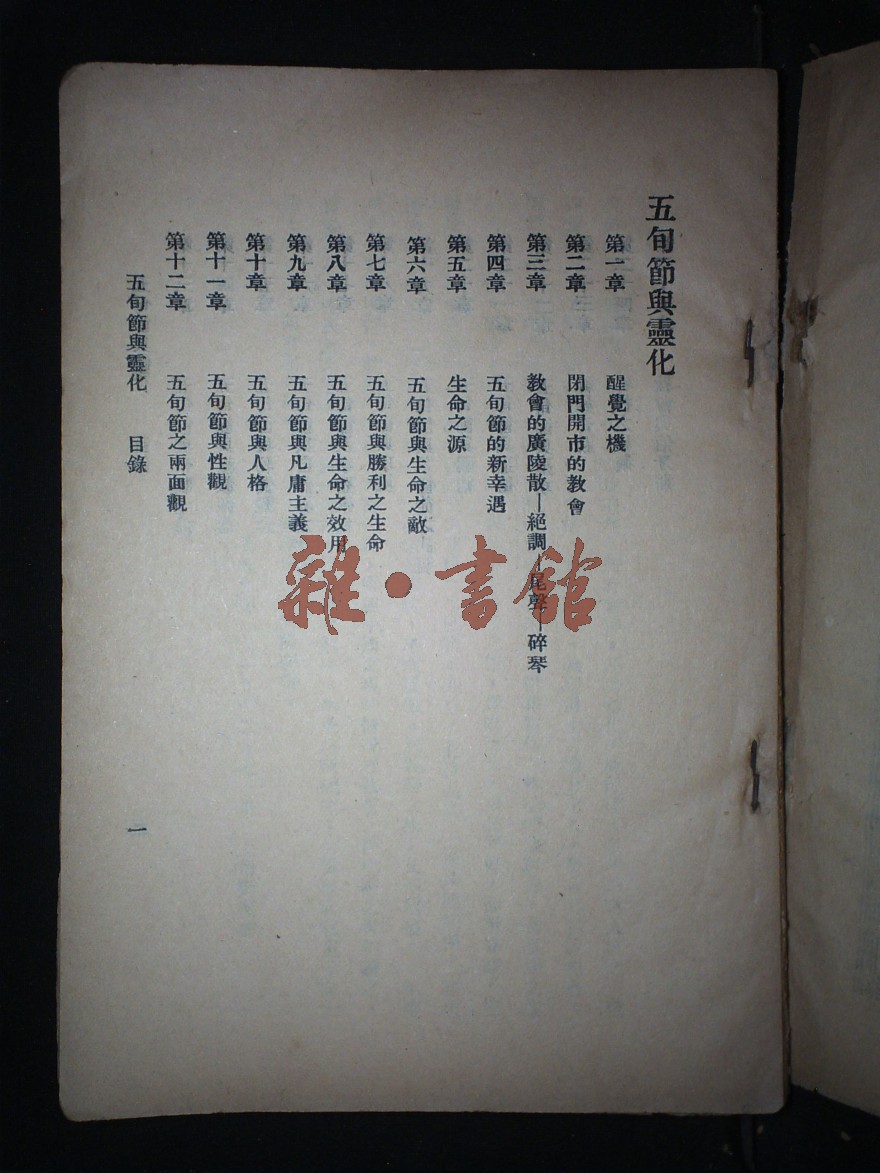 五旬節與靈化
第一章 醒覺之機
第二章 閉門開市的教會
第三章 教會的廣陵散—絕調—尾聲—碎琴
第四章 五旬節的新幸遇
第五章 生命之源
第六章 五旬節與生命之敵
第七章 五旬節與勝利之生命
第八章 五旬節與生命之效用
第九章 五旬節與凡庸主義
第十章 五旬節與人格
第十一章 五旬節與性觀
第十二章 五旬節之兩面觀
五旬節與靈化 目錄
一
雜·書館